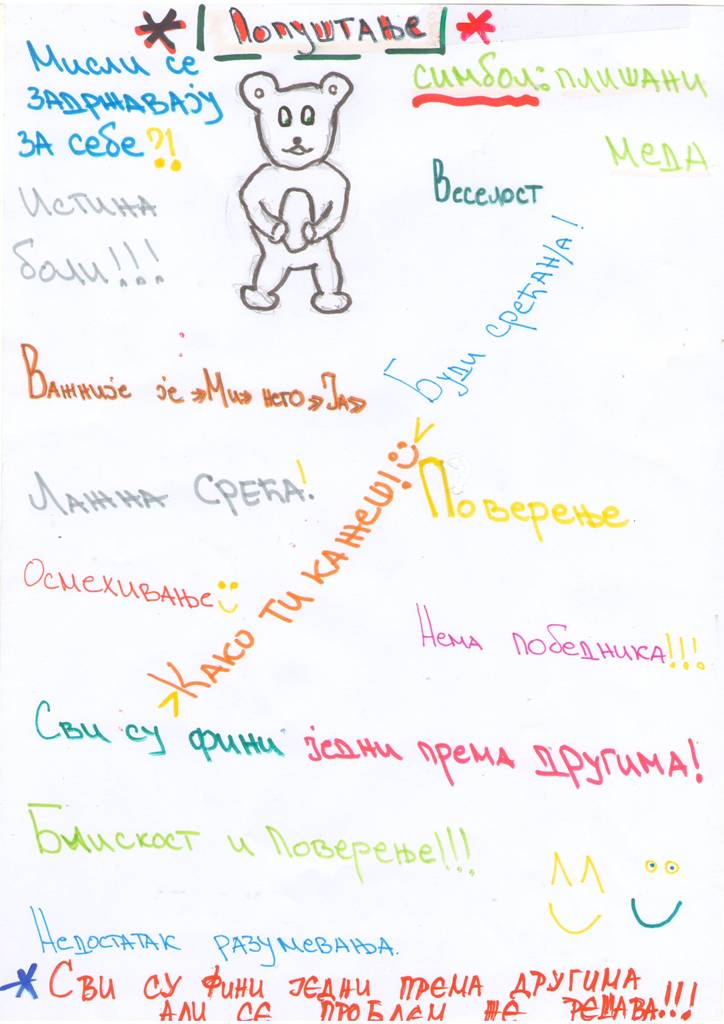 Попуштање
Мисли се
задржавају
за себе?!
симбол: плишани
меда
Веселост
Истина
боли!!!
Буди срећан/а!
Важније је »Ми» него »Ја»
Лажна срећа!
Како ти кажеш!
Поверење
Осмехивање
Нема победника!!!
Сви су фини једни према другима!
Блискост и поверење!!!
Недостатак разумевања.
Сви су фини једни према другима
али се проблем не решава!!!